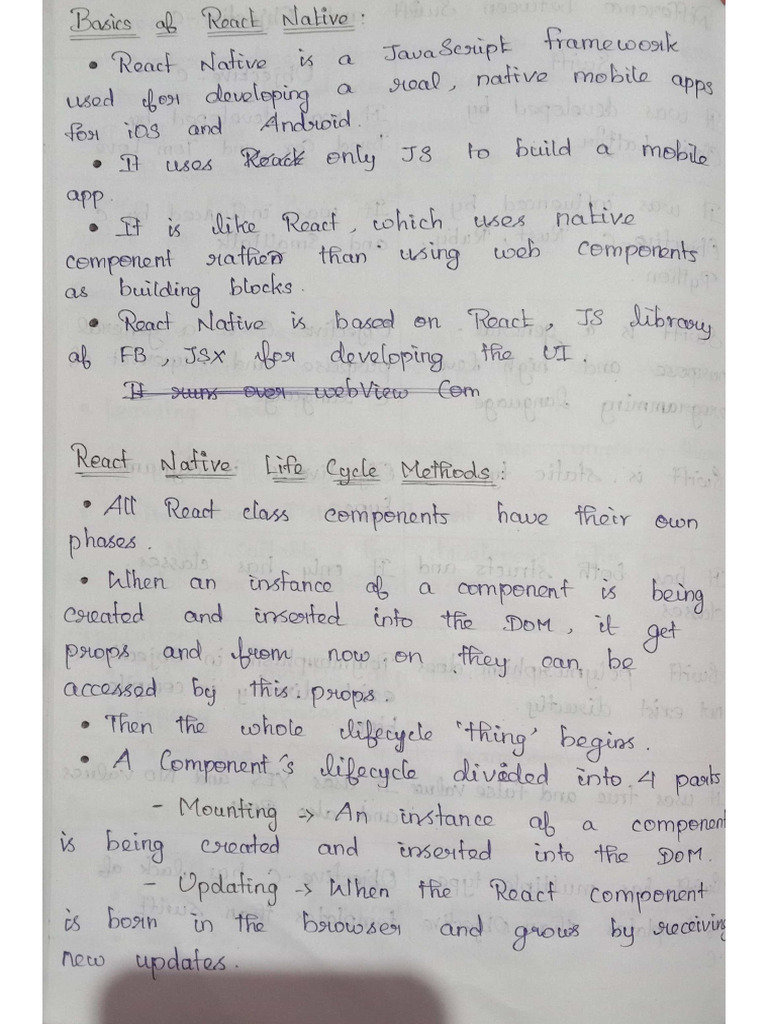 Basics of React Native :
• React Native is a JavaScript framework
used for developing a real, native mobile apps
for iOS and Android.
• It uses React only JS to build a mobile
app.
• It is like React, which uses native
component rather than using web components
as building blocks.
• React Native is based on React, JS library
of FB, JSX for developing the UI.
It runs over webView Com
React Native Life Cycle Methods :
• All React class components have their own
phases.
• When an instance of a component is being
created and inserted into the DOM, it get
props and from now on they can be
accessed by this.props.
• Then the whole lifecycle 'thing' begins.
• A Component's lifecycle divided into 4 parts
- Mounting → An instance of a component
is being created and inserted into the DOM.
- Updating → When the React component
is born in the browser and grows by receiving
new updates.